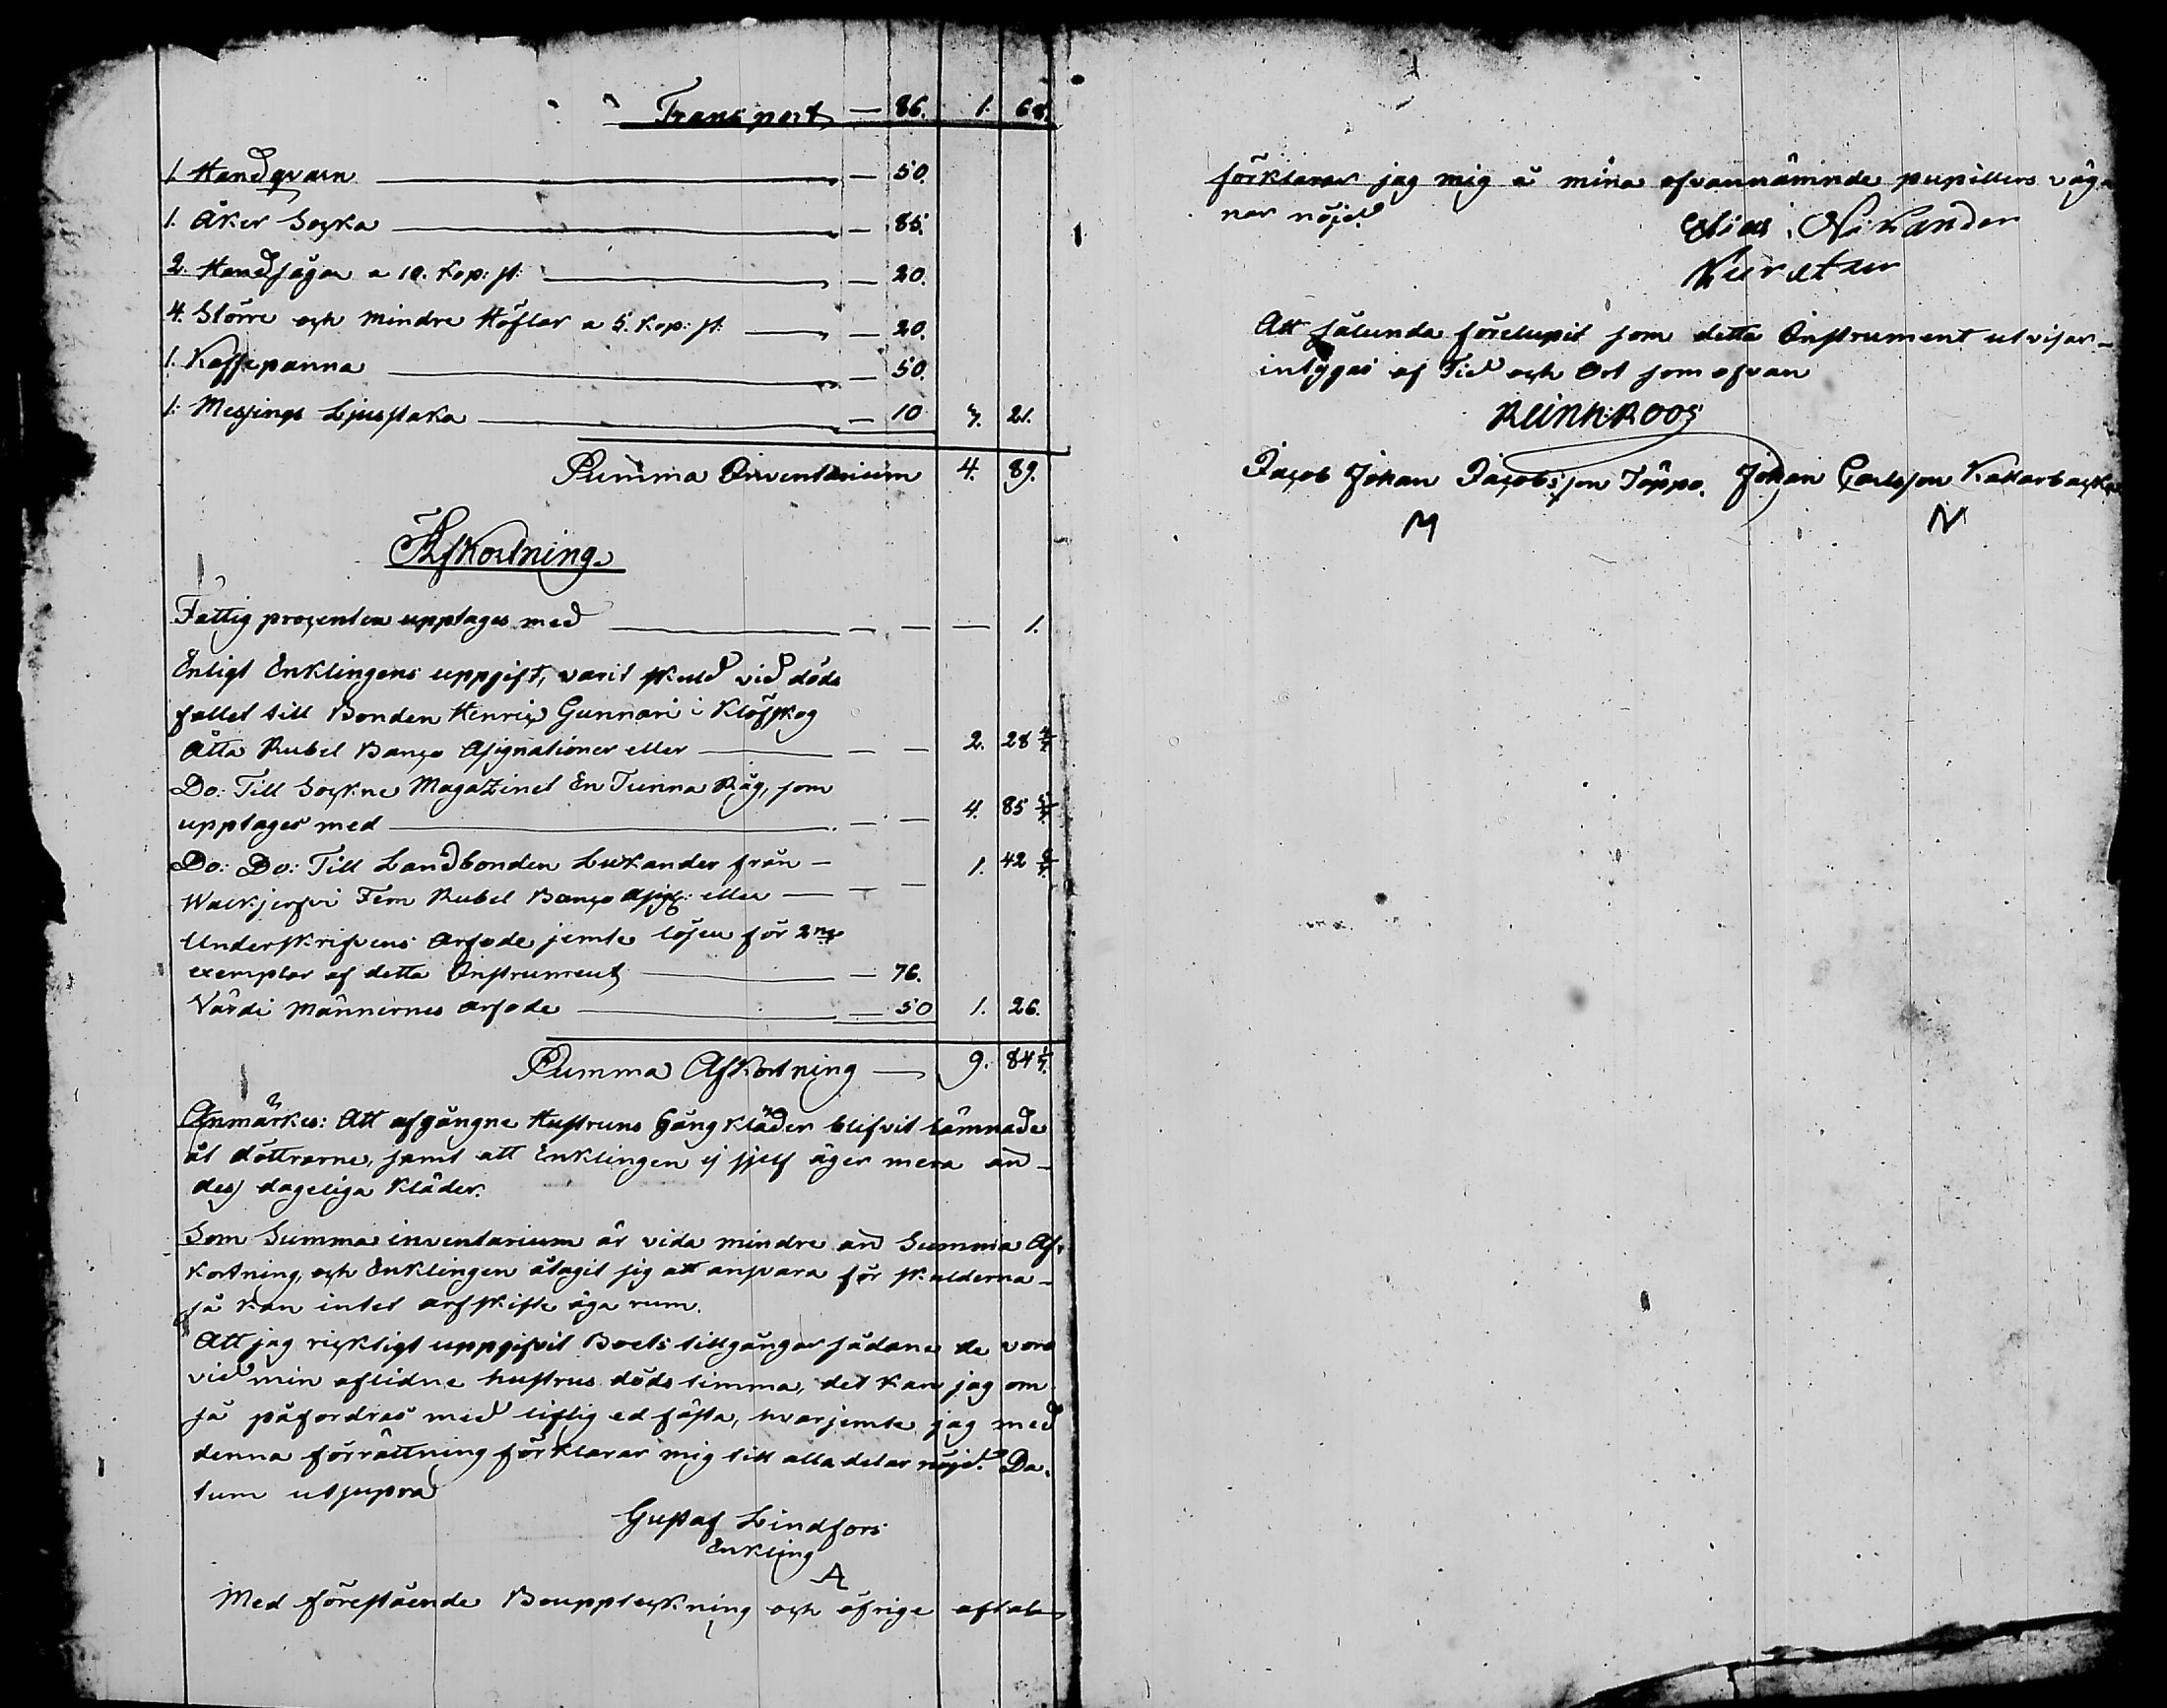 Transport — 86. 1. 68.
1. Handqvarn — 50.
1. Åker Socka — 85.
2. Handsågar a 10. Kop: st: — 20.
4. Större och mindre Höflar a 5. Kop: st: — 20.
1. Kaffepanna — 50.
1. Messings Ljusstaka — 10 3. 21.
Summa Inventarium 4. 89.
Afkortning.
Fattig procenten upptages med — — — 1.
Enligt Enklingens uppgift, varit skuld vid döds
fallet till Bonden Henric Gunnari i Klöfskog
Åtta Rubel Banco Assignationer eller — — 2. 28 4/7
Do: Till Sockne Magazinet En Tunna Råg, som
upptages med — — 4. 85 5/7
Do: Do: Till Landbonden Lukander från — 1. 42 6/7
Fem Rubel Banco eller — — —
Underskrifvens Arfode jemte lösen för 2ne
exemplar af detta Instrument — 76.
Värdi Männernes arfode — 50 1. 26.
Summa Afkortning — 9. 84 1/7.
Anmärkes: Att afgångne Hustruns Gång kläder blifvit lämnade
åt döttrarne, samt att Enklingen ej sjelf äger mera än
des dageliga Kläder.
Som Summa inventarium är vida mindre än Summa Af-
kortning, och Enklingen åtagit sig att ansvara för skulderna —
så kan intet arfskifte äga rum.
Att jag ricktigt uppgifvit Boets tillgångar sådane de voro
vid min aflidne hustrus döds timma, det kan jag om
så påfordras med liflig ed fästa, hvarjemte jag med
denna förrättning förklarar mig till alla delar nöjd. Da-
tum utsupra
Gustaf Lindfors
Enkling
A
Med förestående Bouppteckning och öfrige aftal
förklarar jag mig å mina ofvannämnde pupillers väg
nar nöjd.
Elias Nikander
Kurator
Att sålunda förelupit som detta Instrument utvisar —
intygas af Tid och Ort som ofvan
Reinh: Roos
Jacob Johan Jacobsson Töppo. Johan Carlsson Kattarbacka
M N